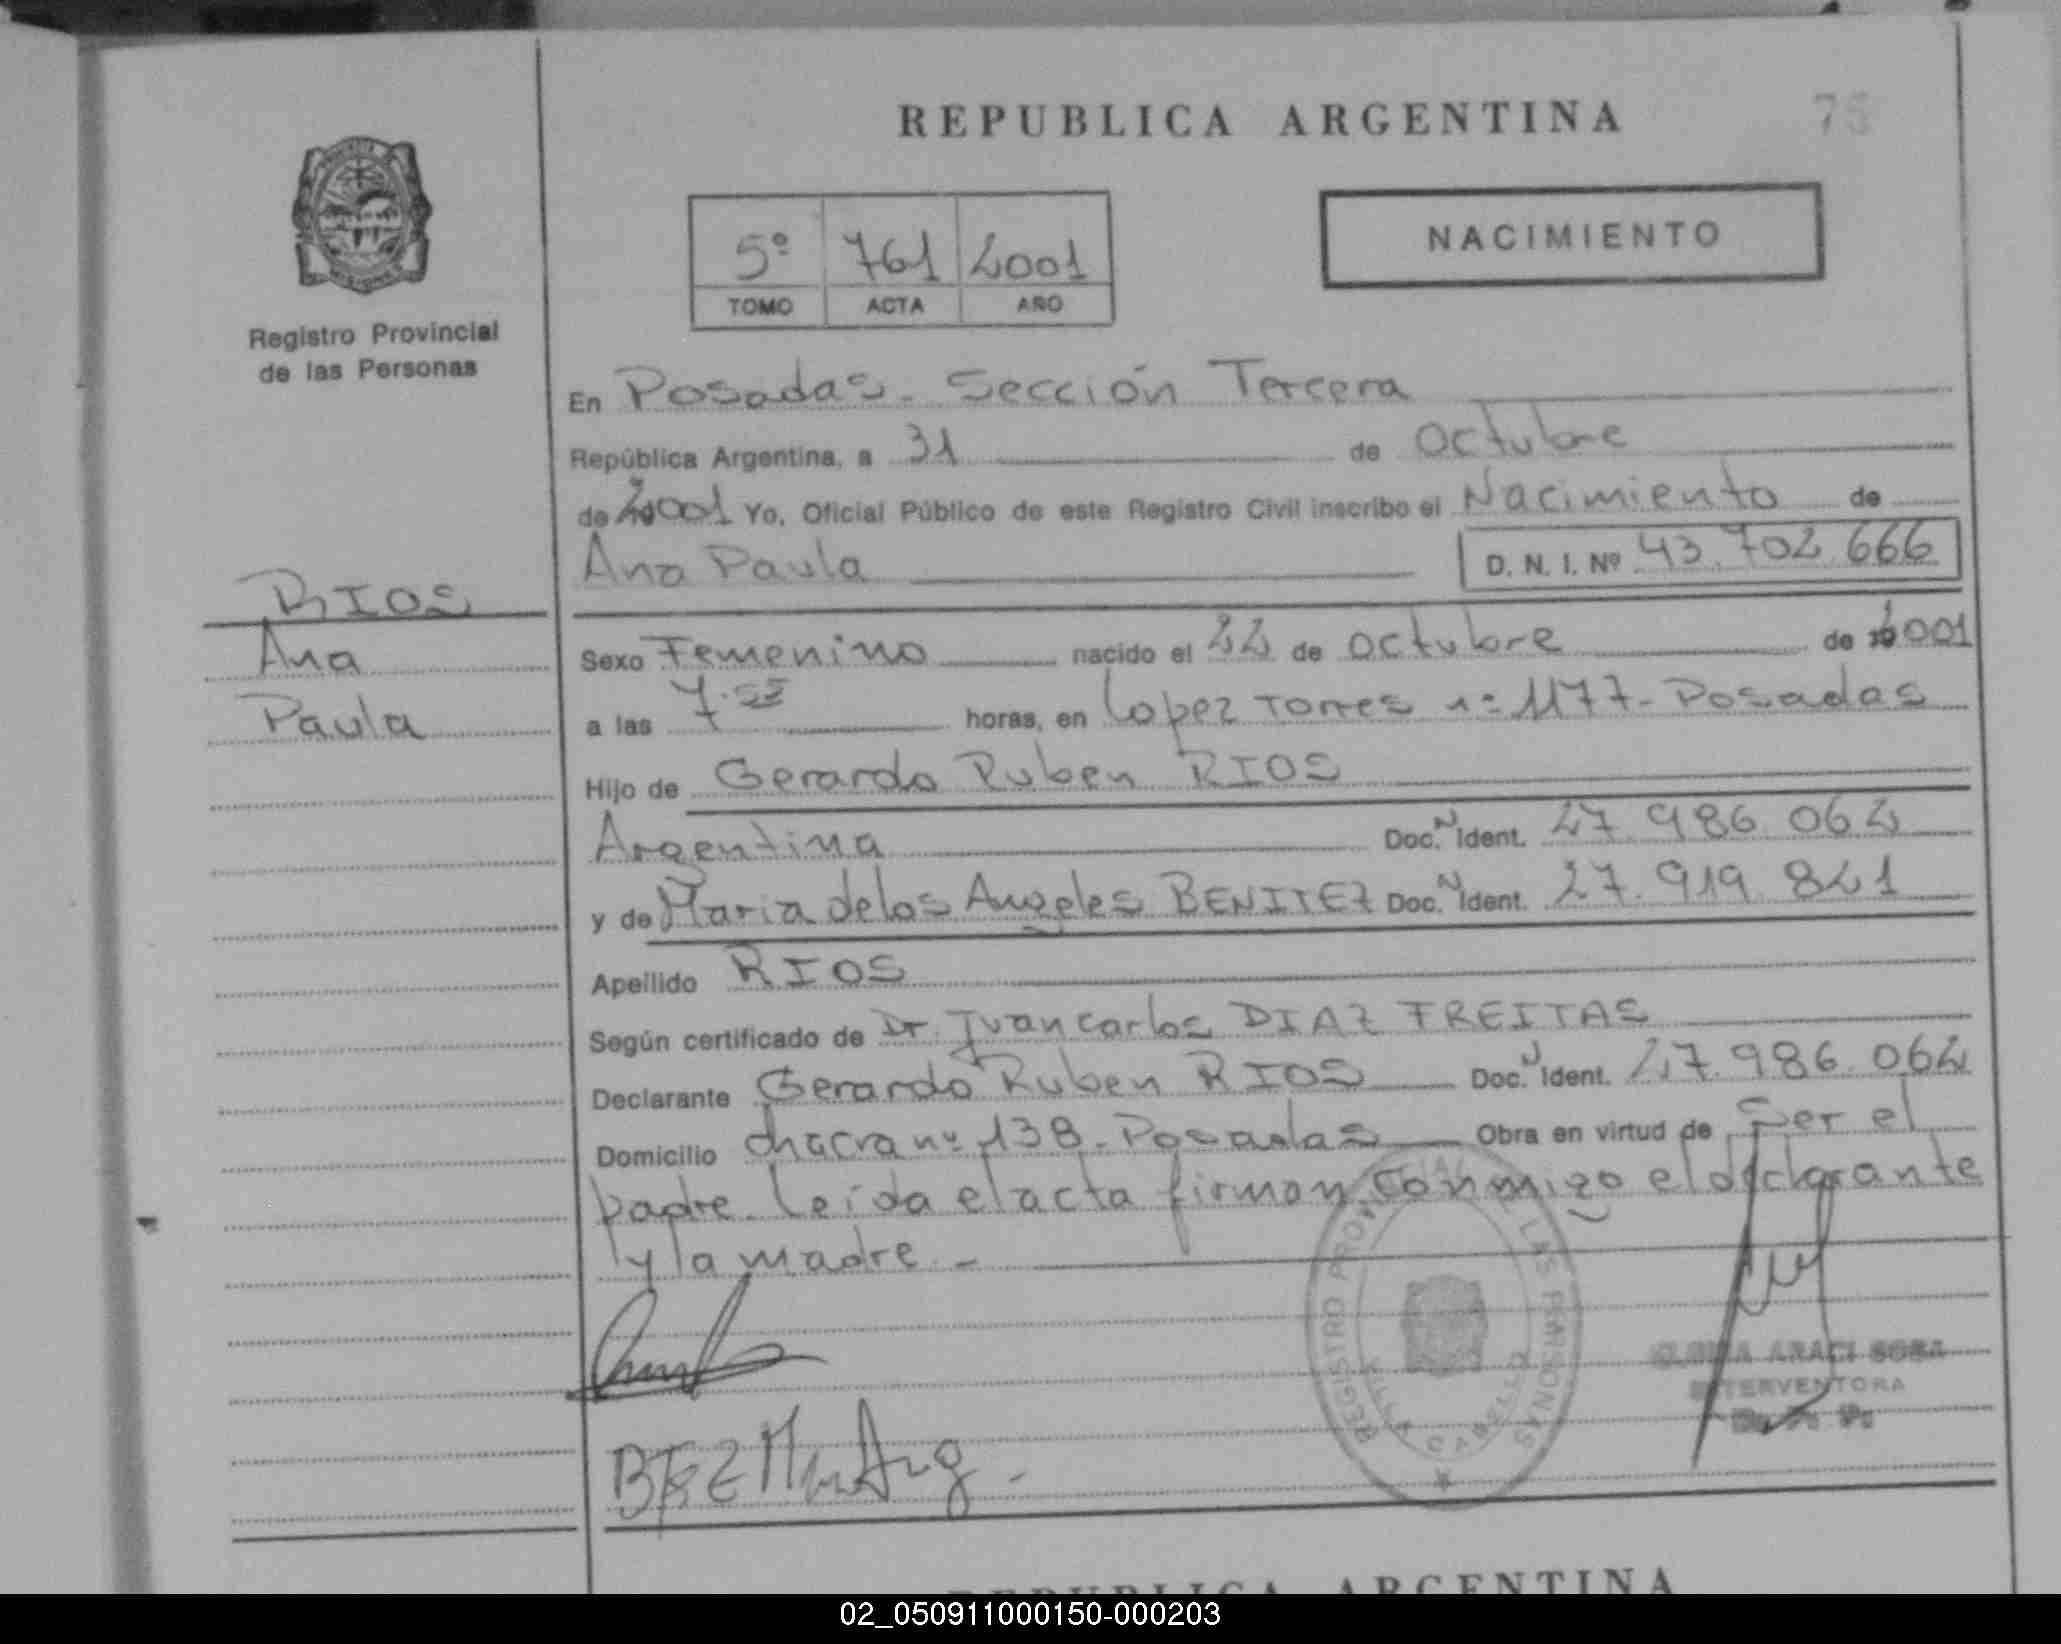 REPUBLICA ARGENTINA
75
NACIMIENTO
5º 761 2001
TOMO ACTA AÑO
Registro Provincial
de las Personas
En Posadas. Sección Tercera
República Argentina, a 31 de Octubre
de 2001 Yo, Oficial Público de este Registro Civil inscribo el Nacimiento de
Ana Paula D. N. I. Nº 43.702.666
RIOS
Ana
Paula
Sexo Femenino nacido el 22 de octubre de 2001
a las 7.55 horas, en Lopez Torres nº 1177- Posadas
Hijo de Gerardo Ruben RIOS
Argentina Doc. N Ident. 27.986.062
y de Maria de los Angeles BENITEZ Doc. N Ident. 27.919.821
Apellido RIOS
Según certificado de Dr. Juan Carlos DIAZ FREITAS
Declarante Gerardo Ruben RIOS Doc. N Ident. 27.986.062
Domicilio chacra nº 138. Posadas Obra en virtud de Ser el
padre. Leída el acta firman conmigo el declarante
y la madre. -
REGISTRO PROVINCIAL DE LAS PERSONAS
VILLA CABELLO
ARACI SOSA
INTERVENTORA
REPUBLICA ARGENTINA
02_050911000150-000203